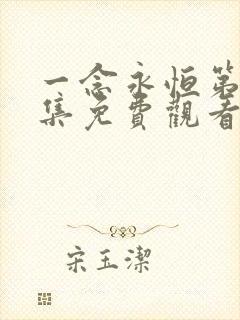 一念永恒第
集免費觀看
宋玉潔